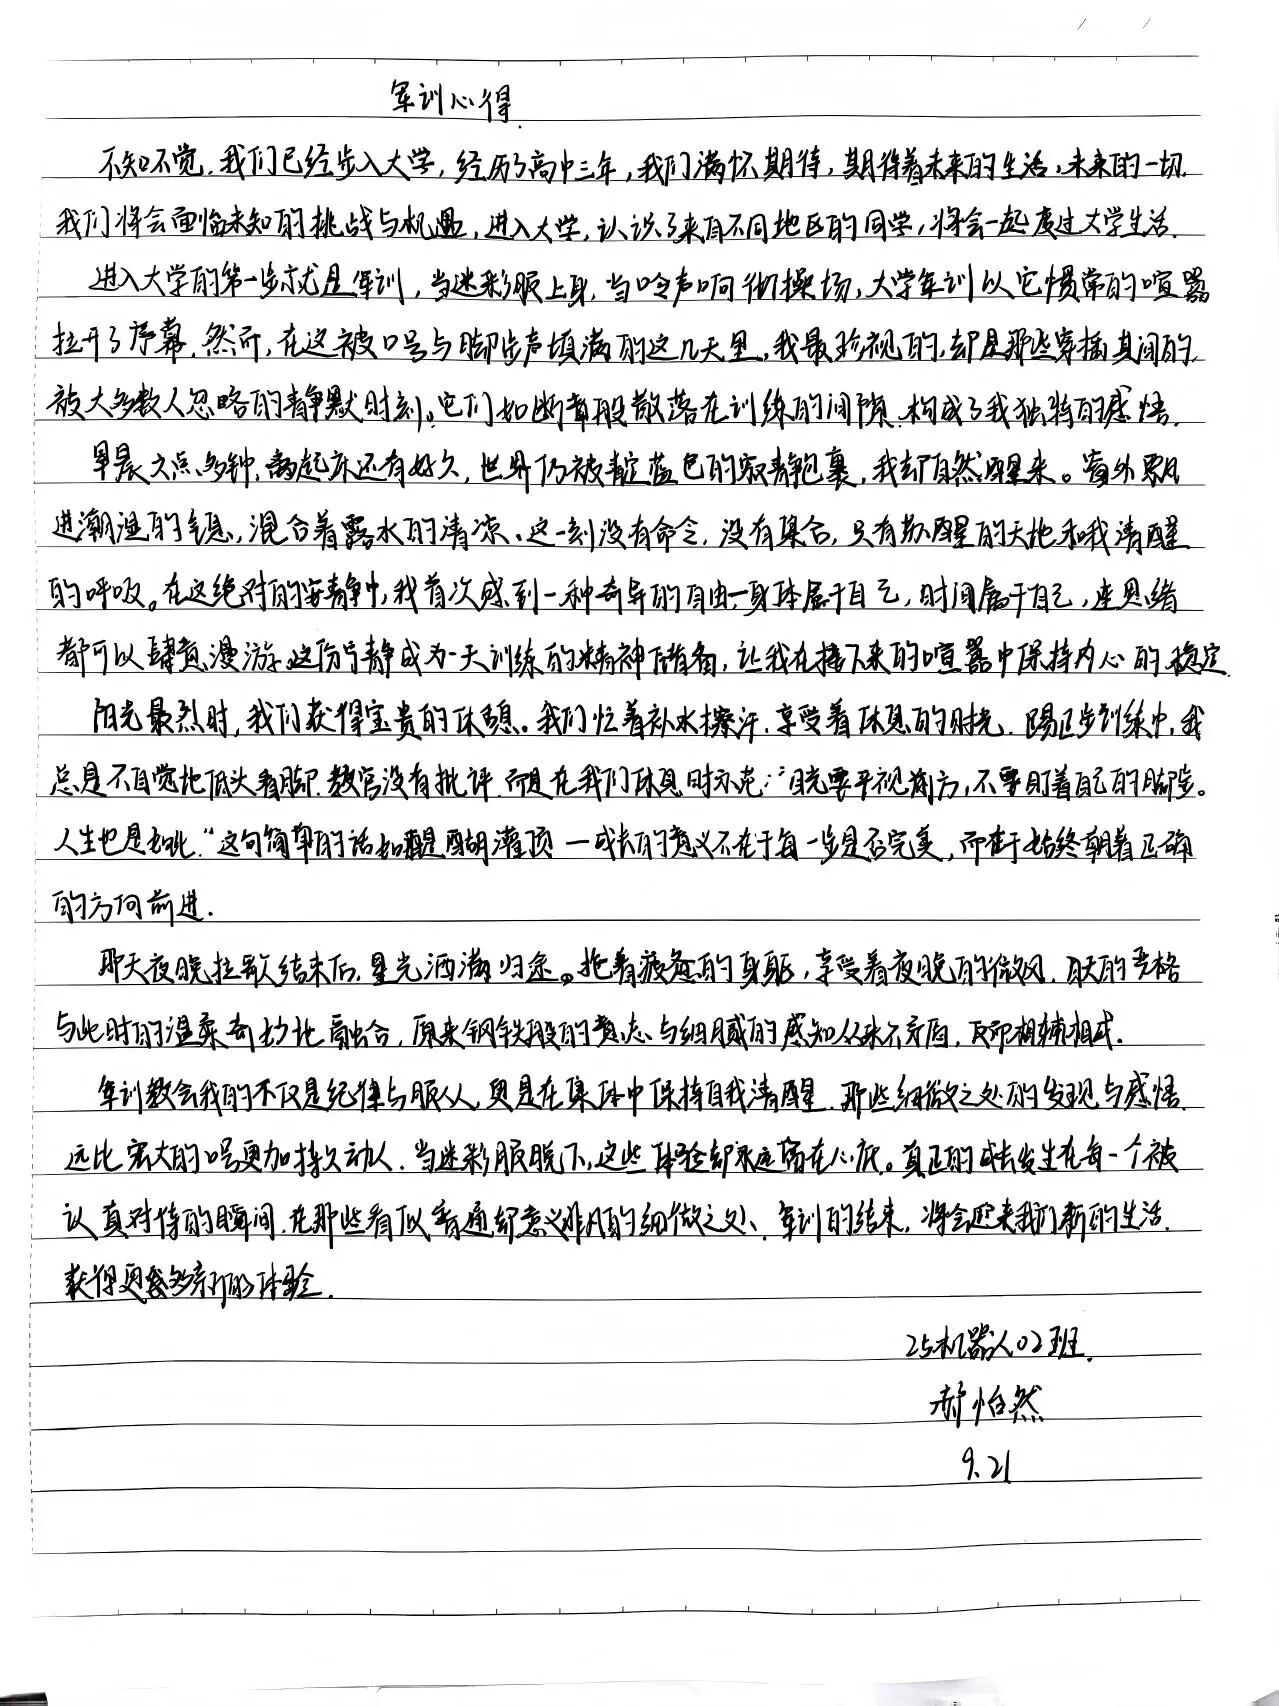 军训心得.
不知不觉,我们已经步入大学,经历了高中三年,我们满怀期待,期待着未来的生活,未来的一切.
我们将会面临未知的挑战与机遇,进入大学,认识了来自不同地区的同学,将会一起度过大学生活.
进入大学的第一步就是军训,当迷彩服上身,当哨声响彻操场,大学军训以它惯常的喧嚣
拉开了序幕.然而,在这被口号与脚步声填满的这几天里,我最珍视的,却是那些穿插其间的,
被大多数人忽略的静默时刻。它们如断章般散落在训练的间隙,构成了我独特的感悟.
早晨六点多钟,离起床还有好久,世界仍被靛蓝色的寂静包裹,我却自然醒来。窗外飘
进潮湿的气息,混合着露水的清凉。这一刻没有命令,没有集合,只有苏醒的天地和我清醒
的呼吸。在这绝对的安静中,我首次感到一种奇异的自由—身体属于自己,时间属于自己,连思绪
都可以肆意漫游.这份宁静成为一天训练的精神储备,让我在接下来的喧嚣中保持内心的稳定.
阳光最烈时,我们获得宝贵的休憩。我们忙着补水擦汗,享受着休息的时光.踢正步训练中,我
总是不自觉地低头看脚.教官没有批评.而是在我们休息时示范:"目光要平视前方,不要盯着自己的脚步。
人生也是如此."这句简单的话如醍醐灌顶—成长的意义不在于每一步是否完美,而在于始终朝着正确
的方向前进.
那天夜晚拉歌结束后,星光洒满归途。拖着疲惫的身躯,享受着夜晚的微风.白天的严格
与此时的温柔奇妙地融合,原来钢铁般的意志与细腻的感知从来不矛盾,反而相辅相成.
军训教会我的不仅是纪律与服从,更是在集体中保持自我清醒.那些细微之处的发现与感悟.
远比宏大的口号更加持久动人.当迷彩服脱下,这些体验却永远留在心底。真正的成长发生在每一个被
认真对待的瞬间.在那些看似普通却意义非凡的细微之处、军训的结束,将会迎来我们新的生活.
获得更多新的体验.
25机器人02班.
郝怡然
9.21